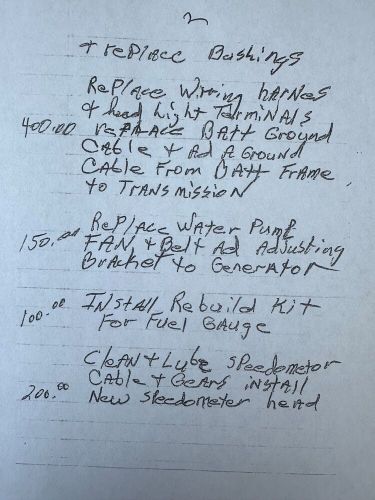 2
+ rePlace Bushings
RePlace Wiring harnes
& head Light Terminals
400.00 rePlace Batt Ground
Cable & Ad A Ground
Cable From Batt Frame
to Transmission
150.00 RePlace Water Pump
FAN & Belt Ad Adjusting
Bracket to Generator
100.00 Install Rebuild Kit
For Fuel Gauge
Clean & Lube Speedometor
Cable & Gears install
200.00 New Sleedometer head